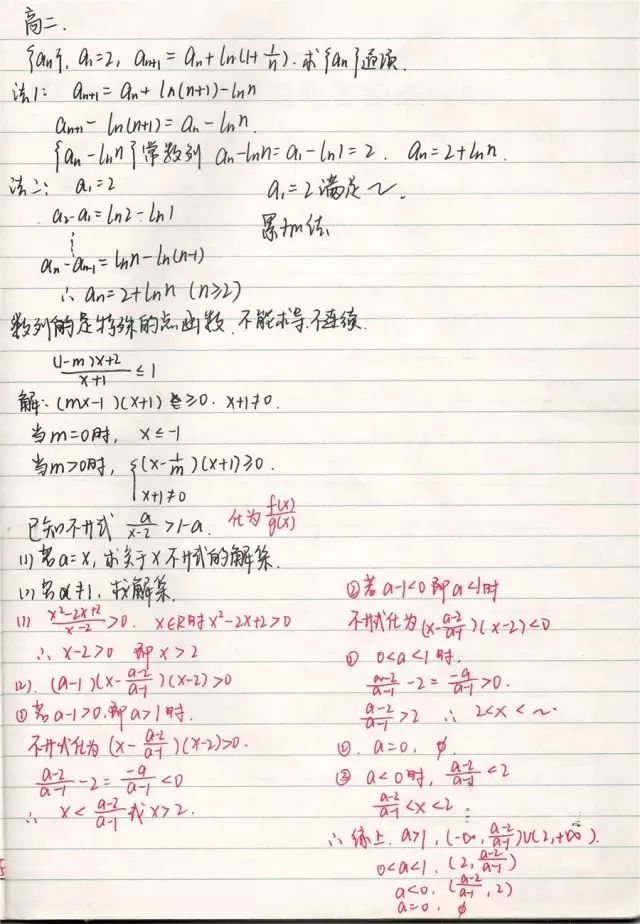 高二.
{an}, a₁=2, an+1 = an + ln(1+1/n). 求{an}通项.
法1: an+1 = an + ln(n+1)-lnn
an+1 - ln(n+1) = an - lnn.
{an-lnn}常数列 an-lnn = a₁-ln1 = 2. an=2+lnn.
法二: a₁=2
a₂-a₁=ln2-ln1
⋮
an-an-1=lnn-ln(n-1)
∴ an=2+lnn (n≥2)
a₁=2满足~.
累加法
数列的是特殊的点函数.不能求导.不连续.
((1-m)x+2)/(x+1) ≤ 1
解: (mx-1)(x+1) ≥0. x+1≠0.
当m=0时, x≤-1
当m>0时, {(x-1/m)(x+1)≥0.
x+1≠0
已知不等式 a/(x-2) >1-a. 化为 f(x)/g(x)
(1) 若a=x, 求关于x不等式的解集.
(2) 若a≠1, 求解集.
(1) (x²-2x+2)/(x-2) >0. x∈R时x²-2x+2>0
∴ x-2>0 即x>2
(2). (a-1)(x-(a-2)/(a-1))(x-2)>0
① 若a-1>0.即a>1时.
不等式化为(x-(a-2)/(a-1))(x-2)>0.
(a-2)/(a-1) -2 = -a/(a-1) <0
∴ x< (a-2)/(a-1) 或x>2.
②若a-1<0 即a<1时
不等式化为(x-(a-2)/(a-1))(x-2)<0
① 0<a<1时.
(a-2)/(a-1) -2 = -a/(a-1) >0.
(a-2)/(a-1) >2 ∴ 2<x<~.
②. a=0, ∅.
③ a<0时, (a-2)/(a-1) <2
(a-2)/(a-1) <x<2
∴ 综上. a>1, (-∞, (a-2)/(a-1))∪(2,+∞).
0<a<1, (2, (a-2)/(a-1))
a<0, ((a-2)/(a-1), 2)
a=0, ∅